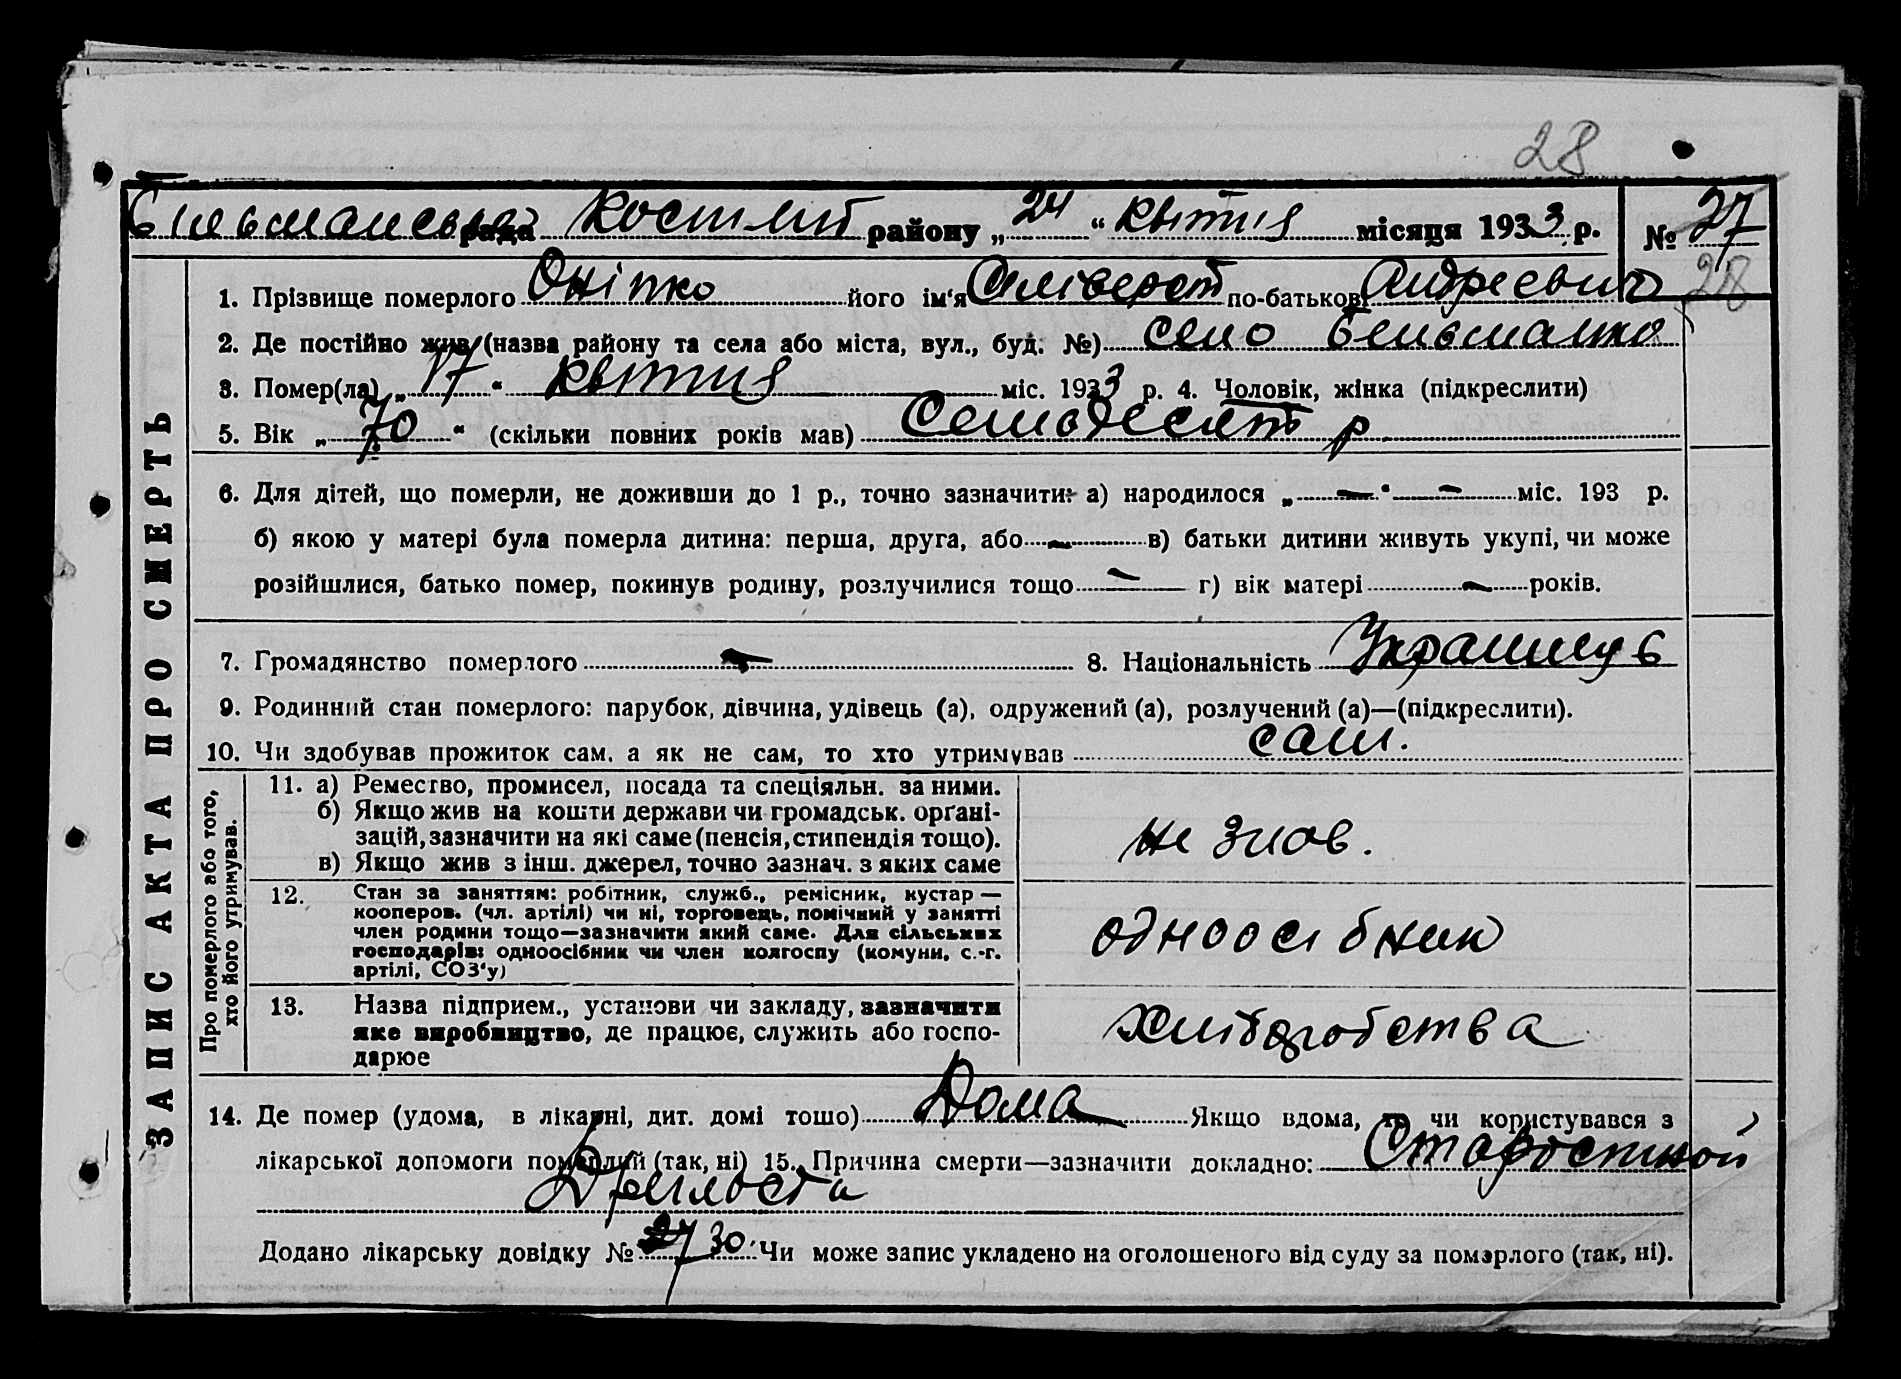 28
Більманська рада Костян району „ 24 “ квітня місяця 1933 р. № 27
28
1. Прізвище померлого Оніпко його ім‘я Сілівερст по-батькові Андреевич
2. Де постійно жив (назва району та села або міста, вул., буд. №) село Бельманка
3. Помер(ла) „ 17 “ квітня міс. 1933 р. 4. Чоловік, жінка (підкреслити)
5. Вік „ 70 “ (скільки повних років мав) Семдесять р
6. Для дітей, що померли, не доживши до 1 р., точно зазначити: а) народилося „ — “ — міс. 193 р.
б) якою у матері була померла дитина: перша, друга, або — в) батьки дитини живуть укупі, чи може
розійшлися, батько помер, покинув родину, розлучилися тощо — г) вік матері — років.
7. Громадянство померлого — 8. Національність
9. Родинний стан померлого: парубок, дівчина, удівець (а), одружений (а), розлучений (а)—(підкреслити).
10. Чи здобував прожиток сам, а як не сам, то хто утримував сам.
11. а) Ремество, промисел, посада та спеціяльн. за ними.
б) Якщо жив на кошти держави чи громадськ. орґані-
зацій, зазначити на які саме (пенсія, стипендія тощо).
в) Якщо жив з інш. джерел, точно зазнач. з яких саме
не знов.
12. Стан за заняттям: робітник, служб., ремісник, кустар —
кооперов. (чл. артілі) чи ні, торговець, помічний у занятті
член родини тощо—зазначити який саме. Для сільських
господарів: одноосібник чи член колгоспу (комуни, с.-г.
артілі, СОЗ‘у)
одноосібник
13. Назва підприєм., установи чи закладу, зазначити
яке виробництво, де працює, служить або госпо-
дарює
хліборобства
14. Де помер (удома, в лікарні, дит. домі тошо) Дома Якщо вдома, то чи користувався з
лікарської допомоги померлий (так, ні) 15. Причина смерти—зазначити докладно: Старостной
Дрехлоста
Додано лікарську довідку № 30 Чи може запис укладено на оголошеного від суду за померлого (так, ні).
ЗАПИС АКТА ПРО СМЕРТЬ
Про померлого або того,
хто його утримував.